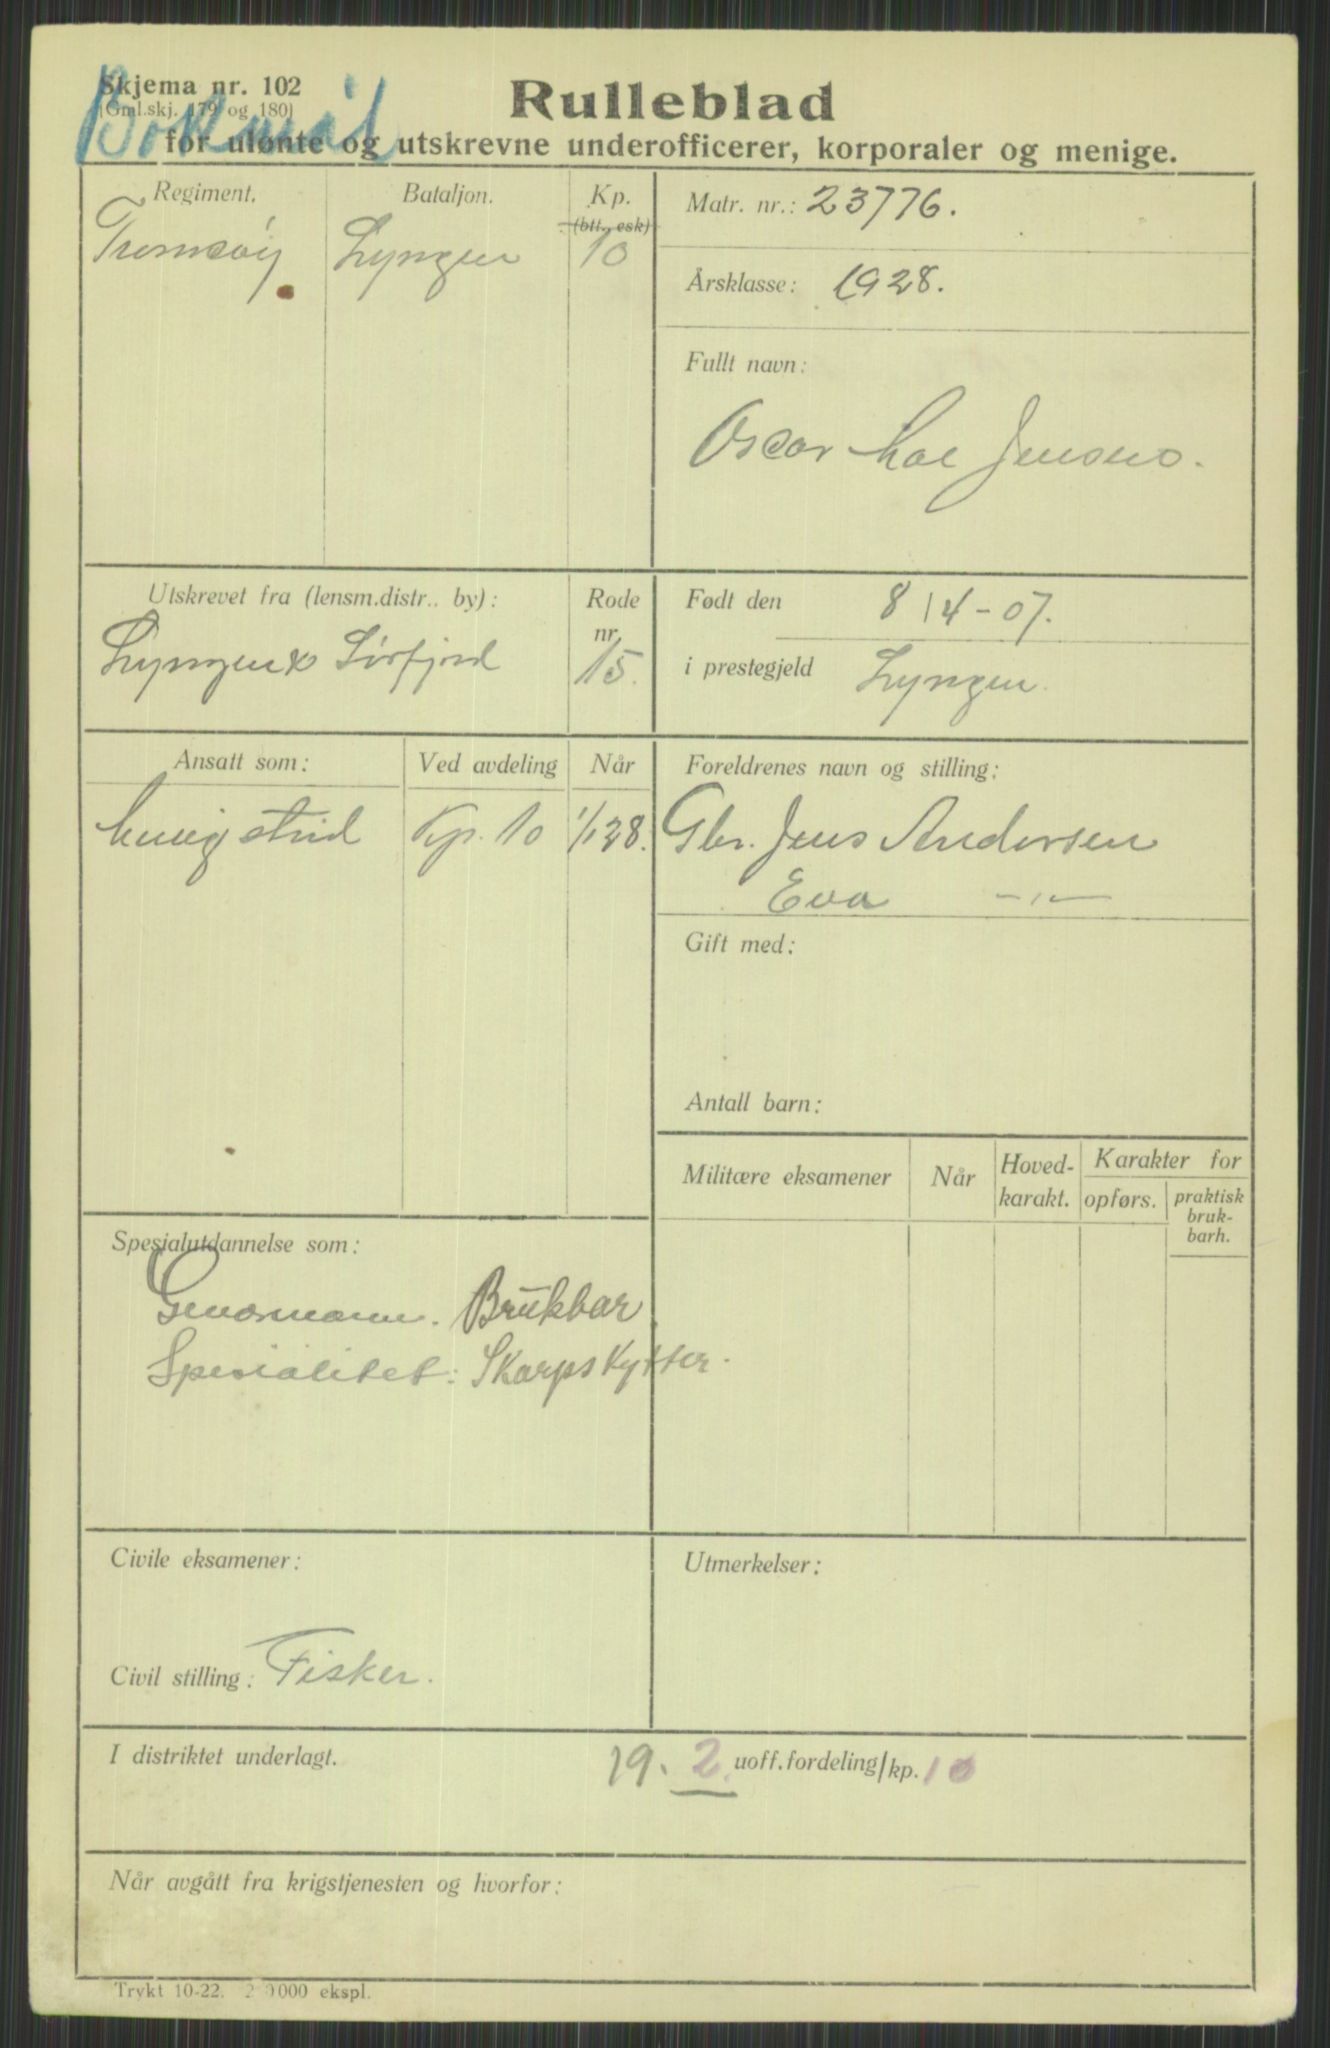 Skjema nr. 102
(Gml.skj. 179 og 180)
Bokmål
Rulleblad
for ulønte og utskrevne underofficerer, korporaler og menige.
Regiment.
Bataljon.
Kp.
(btt., esk)
Lyngen
10
Matr. nr.: 23776.
Årsklasse: 1928.
Fullt navn:
Oscar Jensen.
Utskrevet fra (lensm.distr.. by):
Rode nr.
Sørfjord
15.
Født den 8/4-07.
i prestegjeld Lyngen.
Ansatt som:
Ved avdeling
Når
menig strid
Kp. 10
1/1 28.
Foreldrenes navn og stilling:
Gbr. Jens Andersen
Eva —„—
Gift med:
Antall barn:
Militære eksamener
Når
Hoved-karakt.
Karakter for
opførs.
praktisk bruk-barh.
Spesialutdannelse som:
Geværmann. Brukbar
Spesialitet: Skarpskytter.
Civile eksamener:
Civil stilling: Fisker.
Utmerkelser:
I distriktet underlagt.
19. 2. uoff.fordeling/kp. 10
Når avgått fra krigstjenesten og hvorfor:
Trykt 10-22. 000 ekspl.